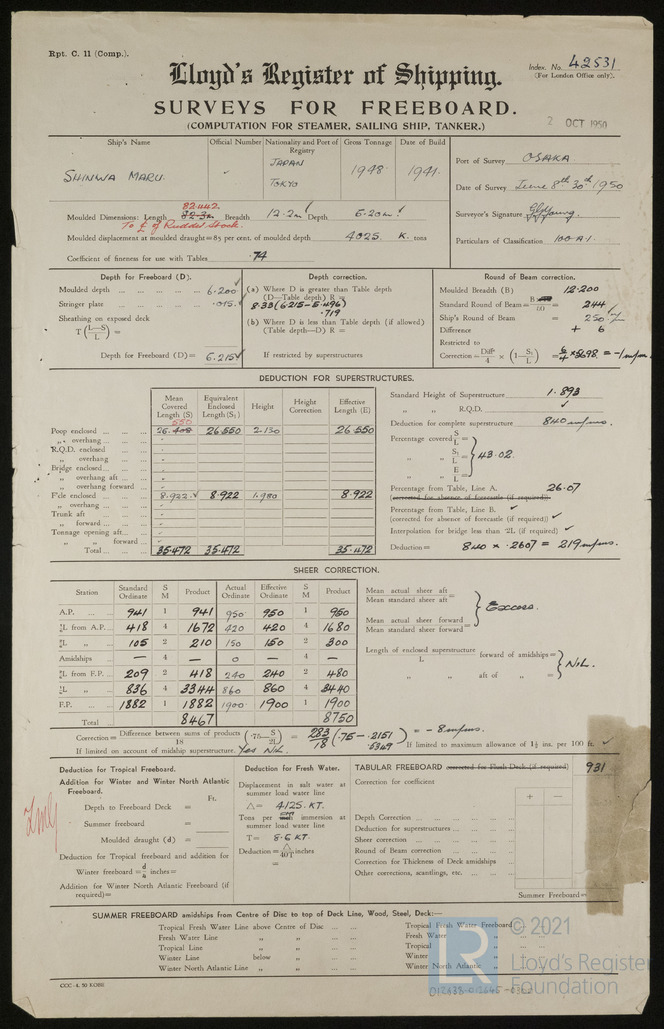 Rpt. C. 11 (Comp.).
Index. No. 42531
(For London Office only).
Lloyd's Register of Shipping.
SURVEYS FOR FREEBOARD.
(COMPUTATION FOR STEAMER, SAILING SHIP, TANKER.)
2 OCT 1950
Ship's Name Official Number Nationality and Port of Registry Gross Tonnage Date of Build
SHINWA MARU. JAPAN TOKYO 1948. 1941.
Port of Survey OSAKA
Date of Survey June 8th 30th 1950
Surveyor's Signature
Particulars of Classification 100 A.1.
82.442
Moulded Dimensions: Length 82.3m Breadth 12.2m Depth 6.20m
To ₵ of Rudder Stock.
Moulded displacement at moulded draught=85 per cent. of moulded depth 4025. K. tons
Coefficient of fineness for use with Tables .74
Depth for Freeboard (D).
Moulded depth ... 6.200
Stringer plate ... .015
Sheathing on exposed deck
T (L—S/L) =
Depth for Freeboard (D)= 6.215
Depth correction.
(a) Where D is greater than Table depth
(D—Table depth) R =
8.33 (6.215 – 5.496)
.719
(b) Where D is less than Table depth (if allowed)
(Table depth—D) R =
If restricted by superstructures
Round of Beam correction.
Moulded Breadth (B) 12.200
Standard Round of Beam = 244
Ship's Round of Beam = 250
Difference + 6
Restricted to
Correction= Diff/4 × (1— S₁/L) = 6/4 × .5698 = -1 m/m
DEDUCTION FOR SUPERSTRUCTURES.
Mean Covered Length (S) Equivalent Enclosed Length (S₁) Height Height Correction Effective Length (E)
550
Poop enclosed ... 26.408 26.550 2.130 26.550
„ overhang ...
R.Q.D. enclosed
„ overhang
Bridge enclosed...
„ overhang aft ...
„ overhang forward
F'cle enclosed ... 8.922 8.922 1.980 8.922
„ overhang ...
Trunk aft ...
„ forward ...
Tonnage opening aft...
„ „ forward ...
Total ... 35.472 35.472 35.472
Standard Height of Superstructure 1.893
„ „ R.Q.D.
Deduction for complete superstructure 840 m/ms.
Percentage covered S/L =
„ „ S₁/L = 43.02.
„ „ E/L =
Percentage from Table, Line A. 26.07
(corrected for absence of forecastle (if required))
Percentage from Table, Line B.
(corrected for absence of forecastle (if required))
Interpolation for bridge less than ·2L (if required)
Deduction= 840 × .2607 = 219 m/ms.
SHEER CORRECTION.
Station Standard Ordinate S M Product Actual Ordinate Effective Ordinate S M Product
A.P. ... 941 1 941 950 950 1 950
⅙L from A.P. ... 418 4 1672 420 420 4 1680
⅓L „ 105 2 210 150 150 2 300
Amidships ... — 4 — 0 — 4 —
⅓L from F.P. ... 209 2 418 240 240 2 480
⅙L „ 836 4 3344 860 860 4 3440
F.P. ... 1882 1 1882 1900 1900 1 1900
Total ... 8467 8750
Mean actual sheer aft
Mean standard sheer aft =
Mean actual sheer forward
Mean standard sheer forward =
Excess.
Length of enclosed superstructure
L
forward of amidships =
„ „ aft of „ =
NIL.
Correction= Difference between sums of products / 18 (·75— S/2L) = 283/18 (.75 – .2151 / .5349) = – 8 m/ms.
If limited on account of midship superstructure. Yes NIL.
If limited to maximum allowance of 1½ ins. per 100 ft.
Deduction for Tropical Freeboard.
Addition for Winter and Winter North Atlantic Freeboard.
Ft.
Depth to Freeboard Deck =
Summer freeboard =
Moulded draught (d) =
Deduction for Tropical freeboard and addition for
Winter freeboard = d/4 inches=
Addition for Winter North Atlantic Freeboard (if required)=
Deduction for Fresh Water.
Displacement in salt water at summer load water line
△= 4125. KT.
Tons per immersion at summer load water line
T= 8.6 KT.
Deduction = △/40T inches
=
TABULAR FREEBOARD corrected for Flush Deck (if required) 931
Correction for coefficient
+ —
Depth Correction ...
Deduction for superstructures ...
Sheer correction ...
Round of Beam correction ...
Correction for Thickness of Deck amidships ...
Other corrections, scantlings, etc. ...
Summer Freeboard=
SUMMER FREEBOARD amidships from Centre of Disc to top of Deck Line, Wood, Steel, Deck:—
Tropical Fresh Water Line above Centre of Disc ... Tropical Fresh Water Freeboard
Fresh Water Line „ „ ... Fresh Water „
Tropical Line „ „ ... Tropical „
Winter Line below „ ... Winter „
Winter North Atlantic Line „ „ ... Winter North Atlantic „
CCC-4. 50
LR
© 2021
Lloyd's Register
Foundation